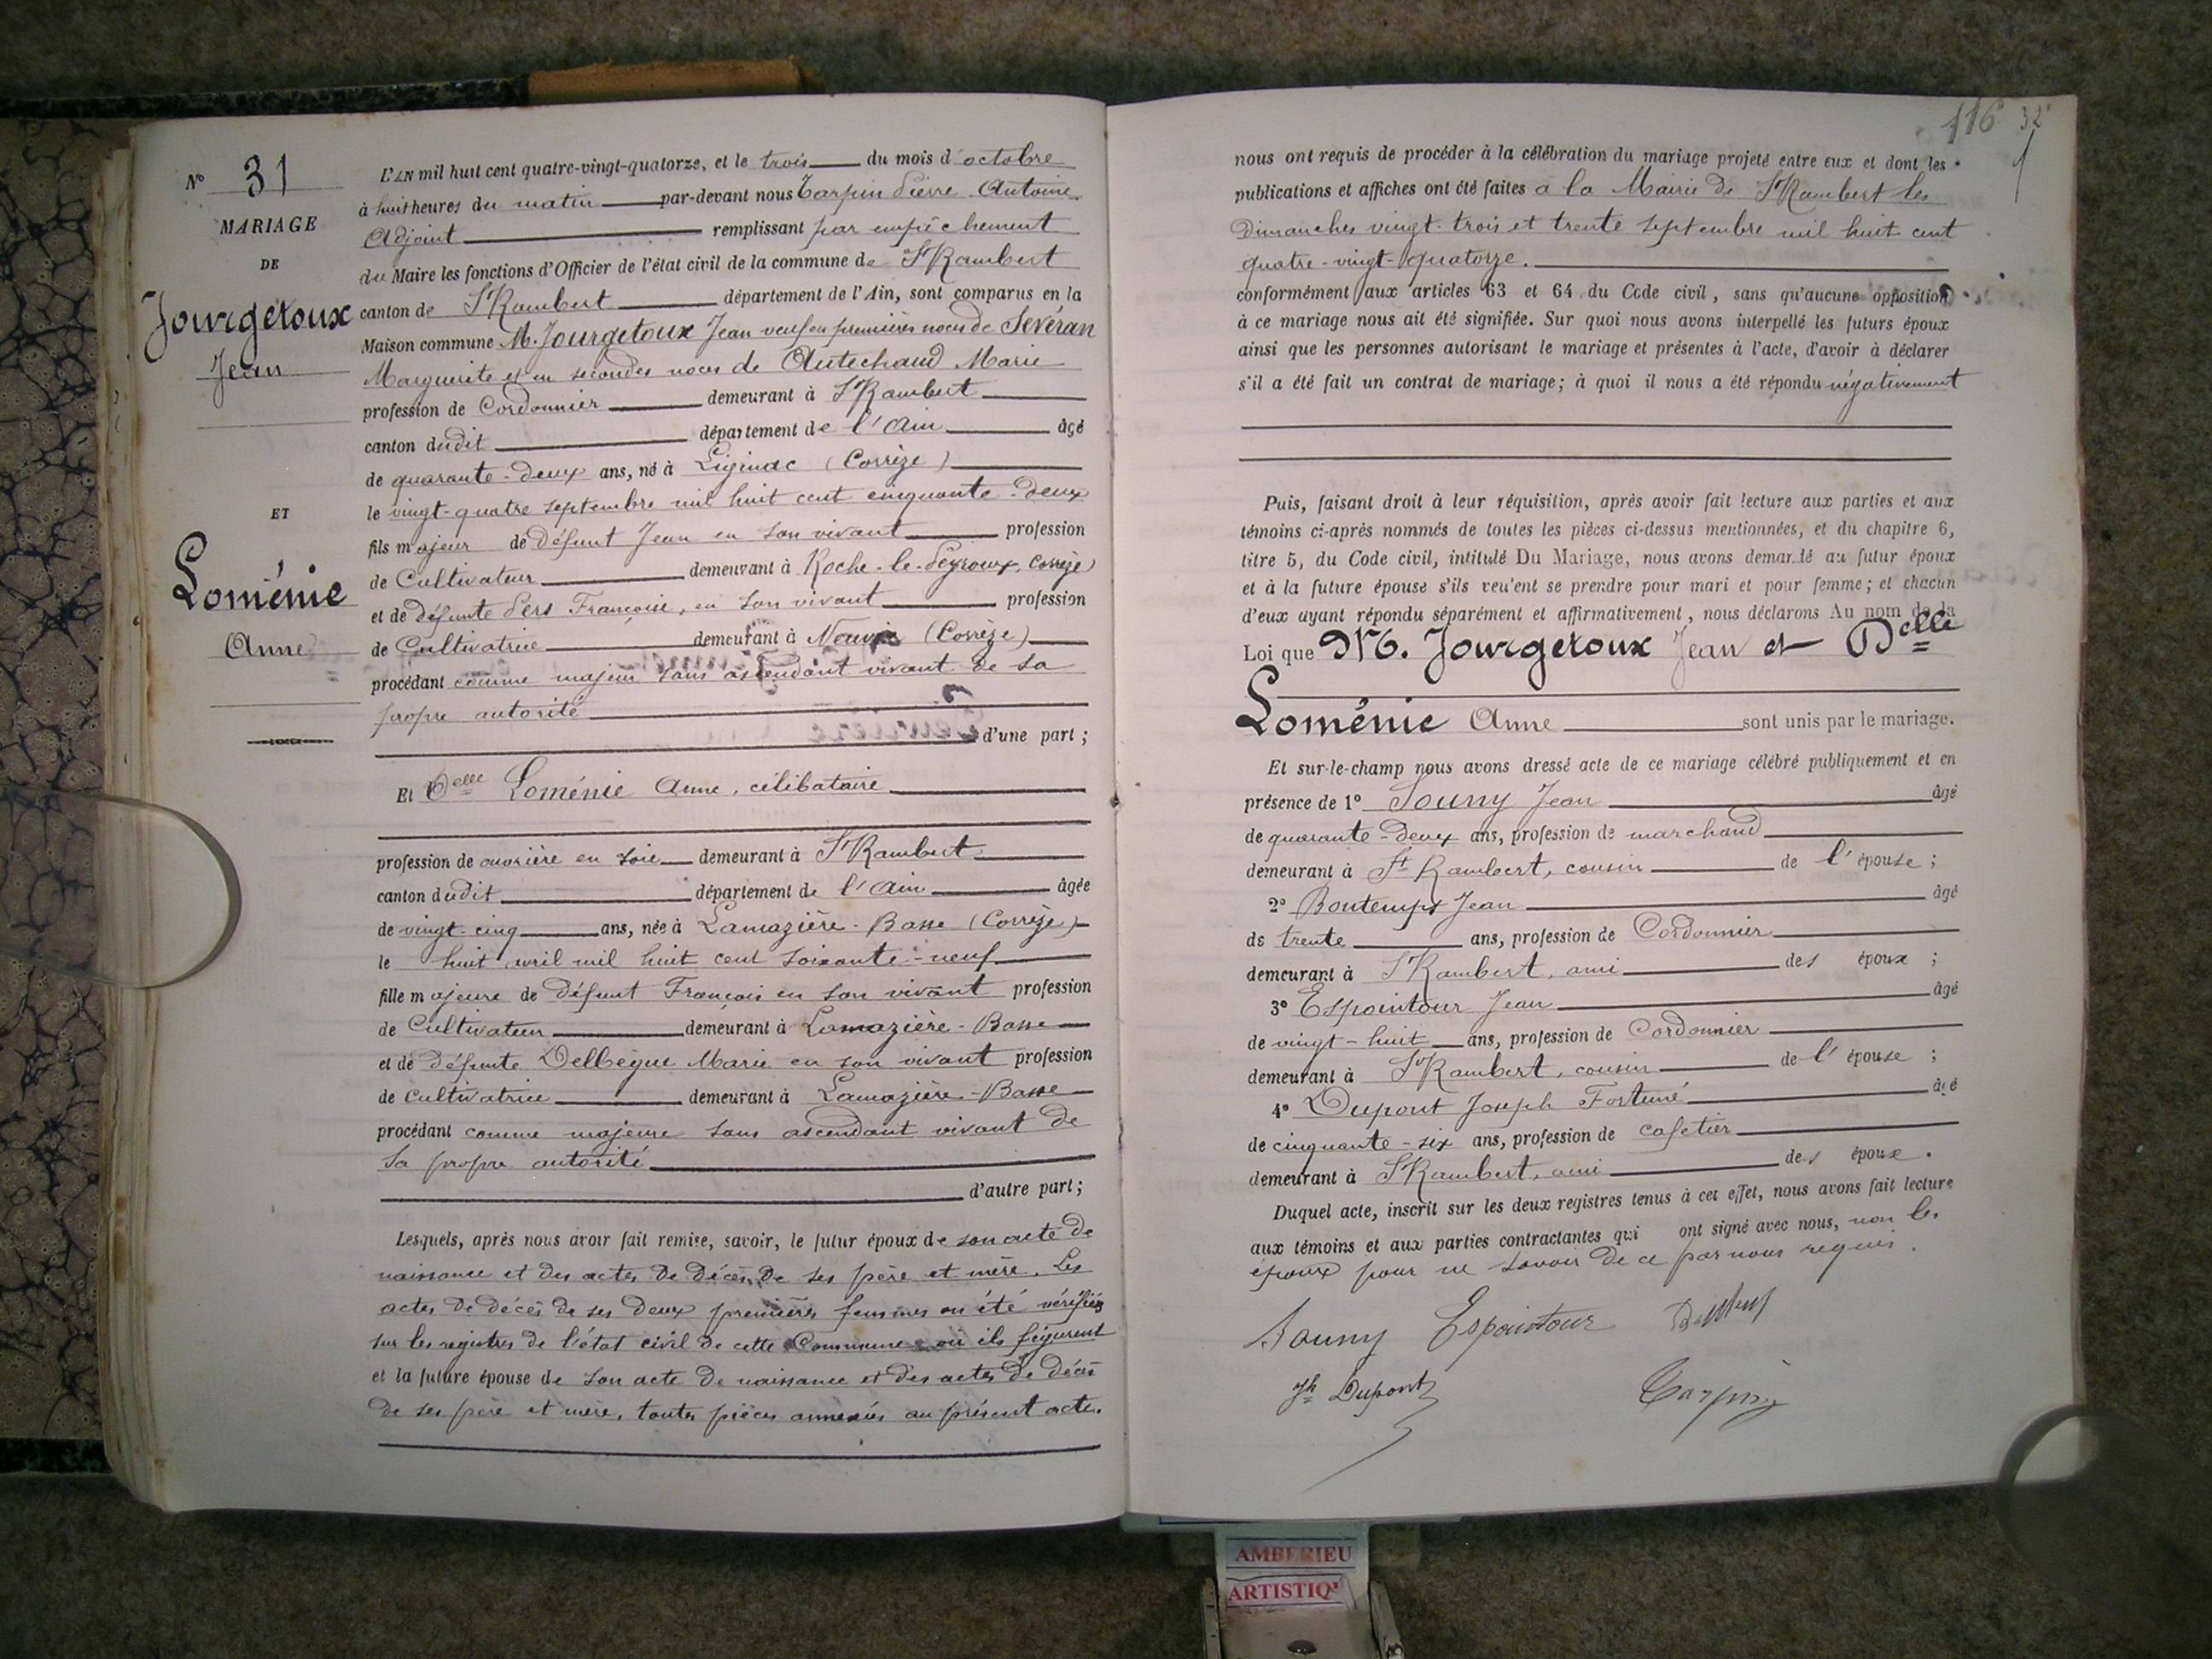 N° 31
MARIAGE
DE
Jourgetoux
Jean
ET
Loménie
Anne
L'AN mil huit cent quatre-vingt-quatorze, et le trois du mois d'octobre
à huit heures du matin par-devant nous Tarpin Pierre Antoine
Adjoint remplissant par empêchement
du Maire les fonctions d'Officier de l'état civil de la commune de St Rambert
canton de St Rambert département de l'Ain, sont comparus en la
Maison commune M. Jourgetoux Jean veuf en premières noces de Sevéran
Marguerite et en secondes noces de Autechaud Marie
profession de Cordonnier demeurant à St Rambert
canton dudit département de l'Ain âgé
de quarante-deux ans, né à Liginac (Corrèze)
le vingt-quatre septembre mil huit cent cinquante-deux
fils majeur de défunt Jean en son vivant profession
de Cultivateur demeurant à Roche-le-Peyroux, Corrèze)
et de défunte Pers Françoise, en son vivant profession
de Cultivatrice demeurant à Neuvic (Corrèze)
procédant comme majeur sans ascendant vivant de sa
propre autorité
d'une part ;
Et Delle Loménie Anne, célibataire
profession de ouvrière en soie demeurant à St Rambert
canton dudit département de l'Ain âgée
de vingt-cinq ans, née à Lamazière-Basse (Corrèze)
le huit avril mil huit cent soixante-neuf
fille majeure de défunt François en son vivant profession
de Cultivateur demeurant à Lamazière-Basse
et de défunte Delbègue Marie en son vivant profession
de Cultivatrice demeurant à Lamazière-Basse
procédant comme majeure sans ascendant vivant de
sa propre autorité
d'autre part ;
Lesquels, après nous avoir fait remise, savoir, le futur époux de son acte de
naissance et des actes de décès de ses père et mère. Les
actes de décès de ses deux premières femmes on été vérifiés
sur les registres de l'état civil de cette Commune où ils figurent
et la future épouse de son acte de naissance et des actes de décès
de ses père et mère, toutes pièces annexées au présent acte.
116 32
nous ont requis de procéder à la célébration du mariage projeté entre eux et dont les
publications et affiches ont été faites a la Mairie de St Rambert les
Dimanches vingt-trois et trente septembre mil huit cent
quatre-vingt-quatorze.
conformément aux articles 63 et 64 du Code civil, sans qu'aucune opposition
à ce mariage nous ait été signifiée. Sur quoi nous avons interpellé les futurs époux
ainsi que les personnes autorisant le mariage et présentes à l'acte, d'avoir à déclarer
s'il a été fait un contrat de mariage ; à quoi il nous a été répondu négativement
Puis, faisant droit à leur réquisition, après avoir fait lecture aux parties et aux
témoins ci-après nommés de toutes les pièces ci-dessus mentionnées, et du chapitre 6,
titre 5, du Code civil, intitulé Du Mariage, nous avons demandé au futur époux
et à la future épouse s'ils veulent se prendre pour mari et pour femme ; et chacun
d'eux ayant répondu séparément et affirmativement, nous déclarons Au nom de la
Loi que M. Jourgetoux Jean et Delle
Loménie Anne sont unis par le mariage.
Et sur-le-champ nous avons dressé acte de ce mariage célébré publiquement et en
présence de 1° Souny Jean âgé
de quarante-deux ans, profession de marchand
demeurant à St Rambert, cousin de l'épouse ;
2° Bontemps Jean âgé
de trente ans, profession de Cordonnier
demeurant à St Rambert, ami des époux ;
3° Espointour Jean âgé
de vingt-huit ans, profession de Cordonnier
demeurant à St Rambert, cousin de l'épouse ;
4° Dupont Joseph Fortuné âgé
de cinquante-six ans, profession de cafetier
demeurant à St Rambert, ami des époux.
Duquel acte, inscrit sur les deux registres tenus à cet effet, nous avons fait lecture
aux témoins et aux parties contractantes qui ont signé avec nous, non les
époux pour ne savoir de ce par nous requis.
Souny Espointour
Jh Dupont Tarpin
AMBERIEU
ARTISTIQ